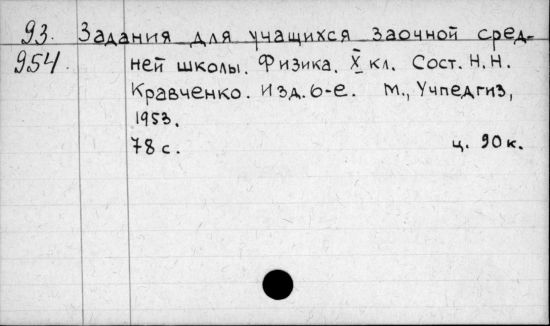 93. Задания для учащихся заочной сред-
954. ней школы. Физика. X кл. Сост. Н.Н.
Кравченко. Изд. 6-е. М., Учпедгиз,
1953.
78 с. ц. 90 к.